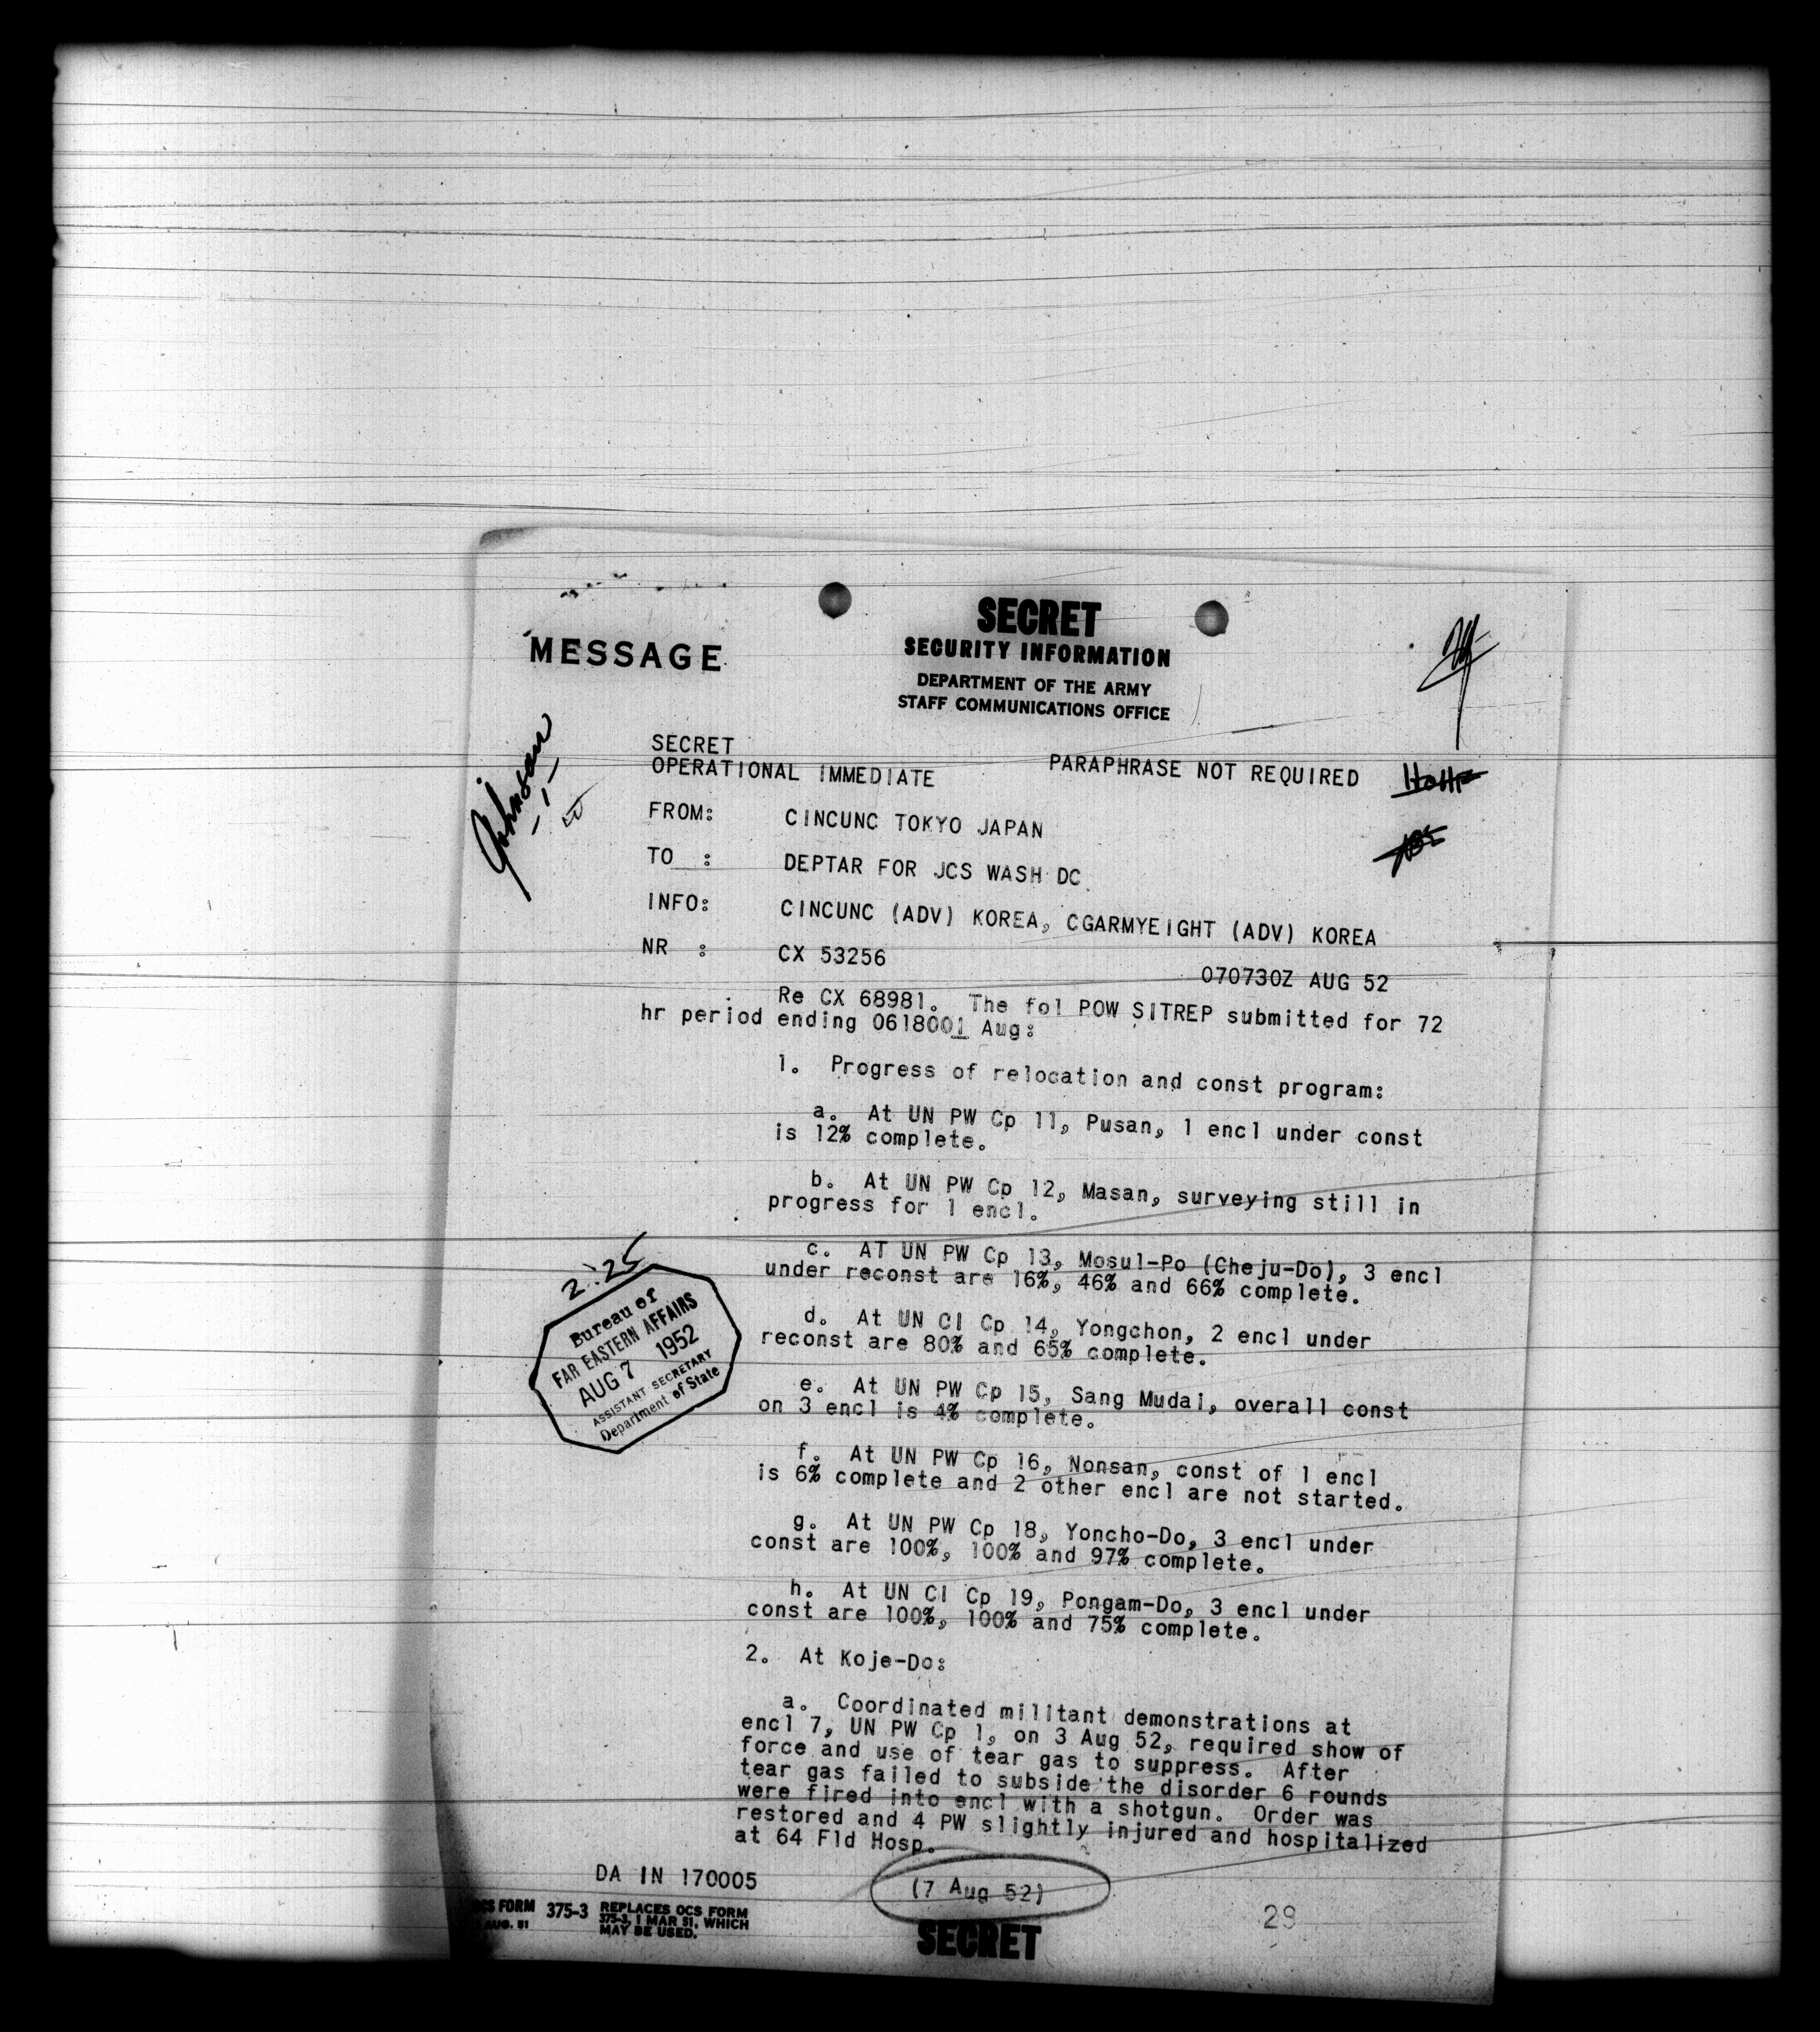 SECRET
SECURITY INFORMATION
MESSAGE
DEPARTMENT OF THE ARMY
STAFF COMMUNICATIONS OFFICE
Johnson
SECRET
OPERATIONAL IMMEDIATE PARAPHRASE NOT REQUIRED
FROM: CINCUNC TOKYO JAPAN
TO : DEPTAR FOR JCS WASH DC
INFO: CINCUNC (ADV) KOREA, CGARMYEIGHT (ADV) KOREA
NR : CX 53256
070730Z AUG 52
Re CX 68981. The fol POW SITREP submitted for 72
hr period ending 061800I Aug:
1. Progress of relocation and const program:
a. At UN PW Cp 11, Pusan, 1 encl under const
is 12% complete.
b. At UN PW Cp 12, Masan, surveying still in
progress for 1 encl.
c. AT UN PW Cp 13, Mosul-Po (Cheju-Do), 3 encl
under reconst are 16%, 46% and 66% complete.
d. At UN CI Cp 14, Yongchon, 2 encl under
reconst are 80% and 65% complete.
e. At UN PW Cp 15, Sang Mudai, overall const
on 3 encl is 4% complete.
f. At UN PW Cp 16, Nonsan, const of 1 encl
is 6% complete and 2 other encl are not started.
g. At UN PW Cp 18, Yoncho-Do, 3 encl under
const are 100%, 100% and 97% complete.
h. At UN CI Cp 19, Pongam-Do, 3 encl under
const are 100%, 100% and 75% complete.
2. At Koje-Do:
a. Coordinated militant demonstrations at
encl 7, UN PW Cp 1, on 3 Aug 52, required show of
force and use of tear gas to suppress. After
tear gas failed to subside the disorder 6 rounds
were fired into encl with a shotgun. Order was
restored and 4 PW slightly injured and hospitalized
at 64 Fld Hosp.
2:25
Bureau of
FAR EASTERN AFFAIRS
AUG 7 1952
ASSISTANT SECRETARY
Department of State
DA IN 170005
(7 Aug 52)
29
OCS FORM 375-3 REPLACES OCS FORM
AUG. 51 375-3, 1 MAR 51, WHICH
MAY BE USED.
SECRET